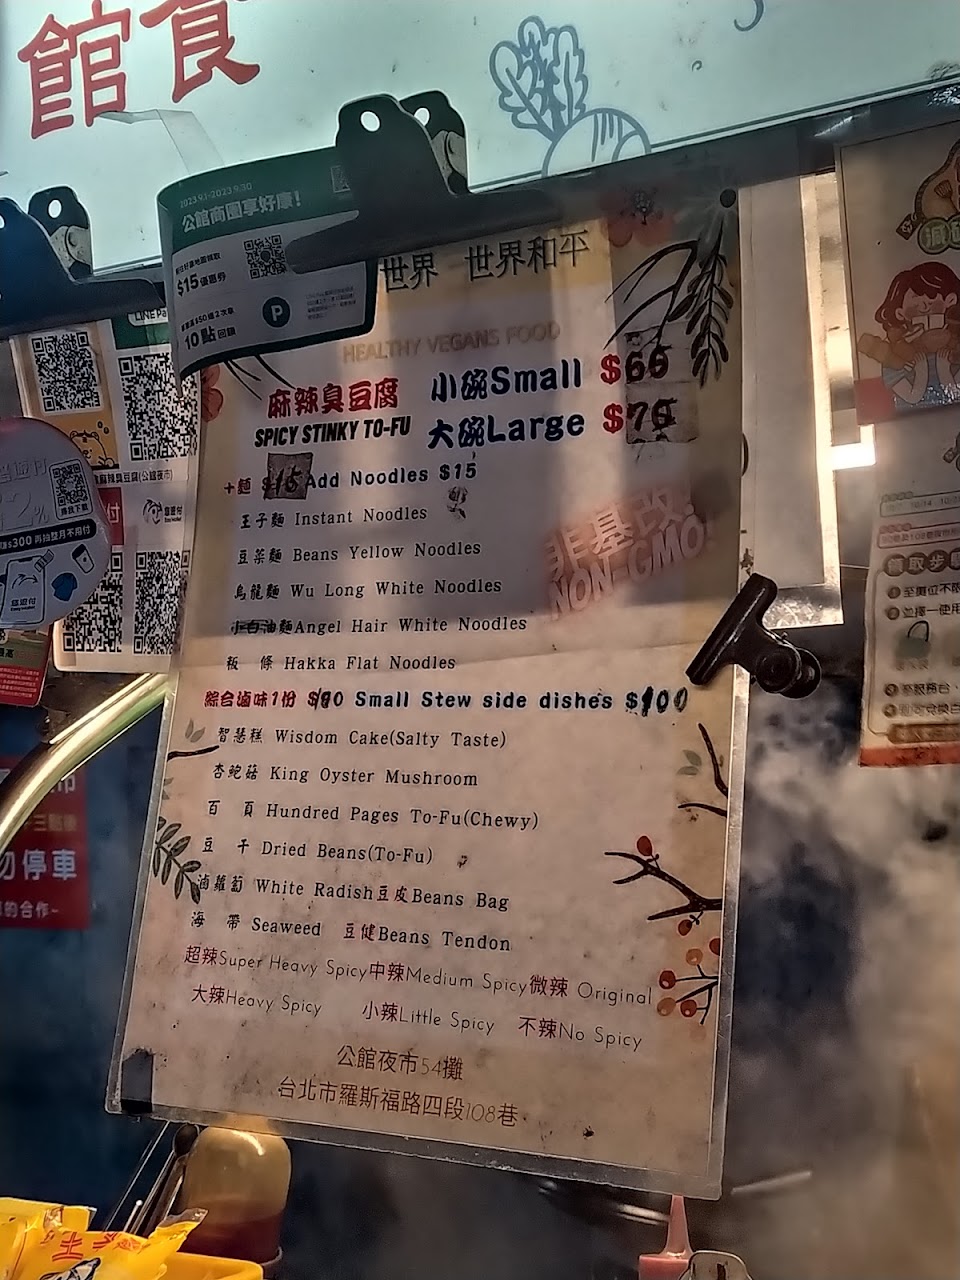 館食
2023 9.1-2023 9.30
公館商圈享好康!
$15優惠券
10點回饋
世界 世界和平
HEALTHY VEGANS FOOD
麻辣臭豆腐 小碗Small
SPICY STINKY TO-FU 大碗Large
+麵 $15 Add Noodles $15
王子麵 Instant Noodles
豆菜麵 Beans Yellow Noodles
烏龍麵 Wu Long White Noodles
油麵Angel Hair White Noodles
粄 條 Hakka Flat Noodles
非基改!
NON-GMO!
綜合滷味1份 Small Stew side dishes $100
智慧糕 Wisdom Cake(Salty Taste)
杏鮑菇 King Oyster Mushroom
百 頁 Hundred Pages To-Fu(Chewy)
豆 干 Dried Beans(To-Fu)
滷蘿蔔 White Radish豆皮Beans Bag
海 帶 Seaweed 豆健Beans Tendon
超辣Super Heavy Spicy中辣Medium Spicy微辣 Original
大辣Heavy Spicy 小辣Little Spicy 不辣No Spicy
公館夜市54攤
台北市羅斯福路四段108巷
LINE Pa
麻辣臭豆腐(公館夜市)
$300 再抽整月不用付
悠遊付
勿停車
的合作~
領取步